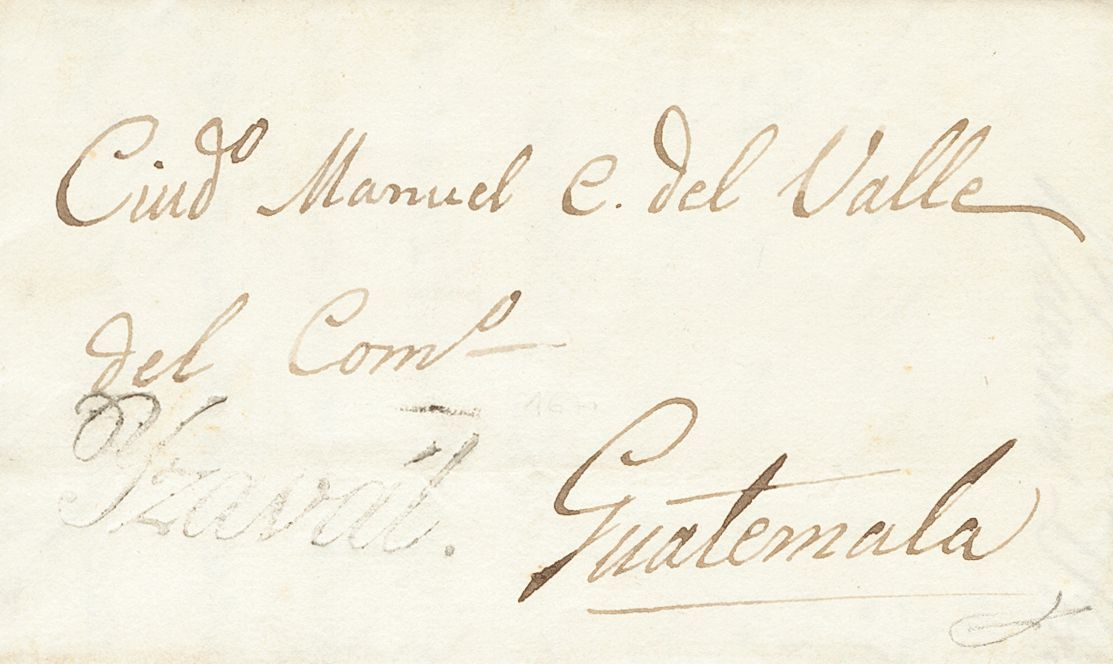 Ciudº Manuel C. del Valle
del Comº
Yzavál.
Guatemala